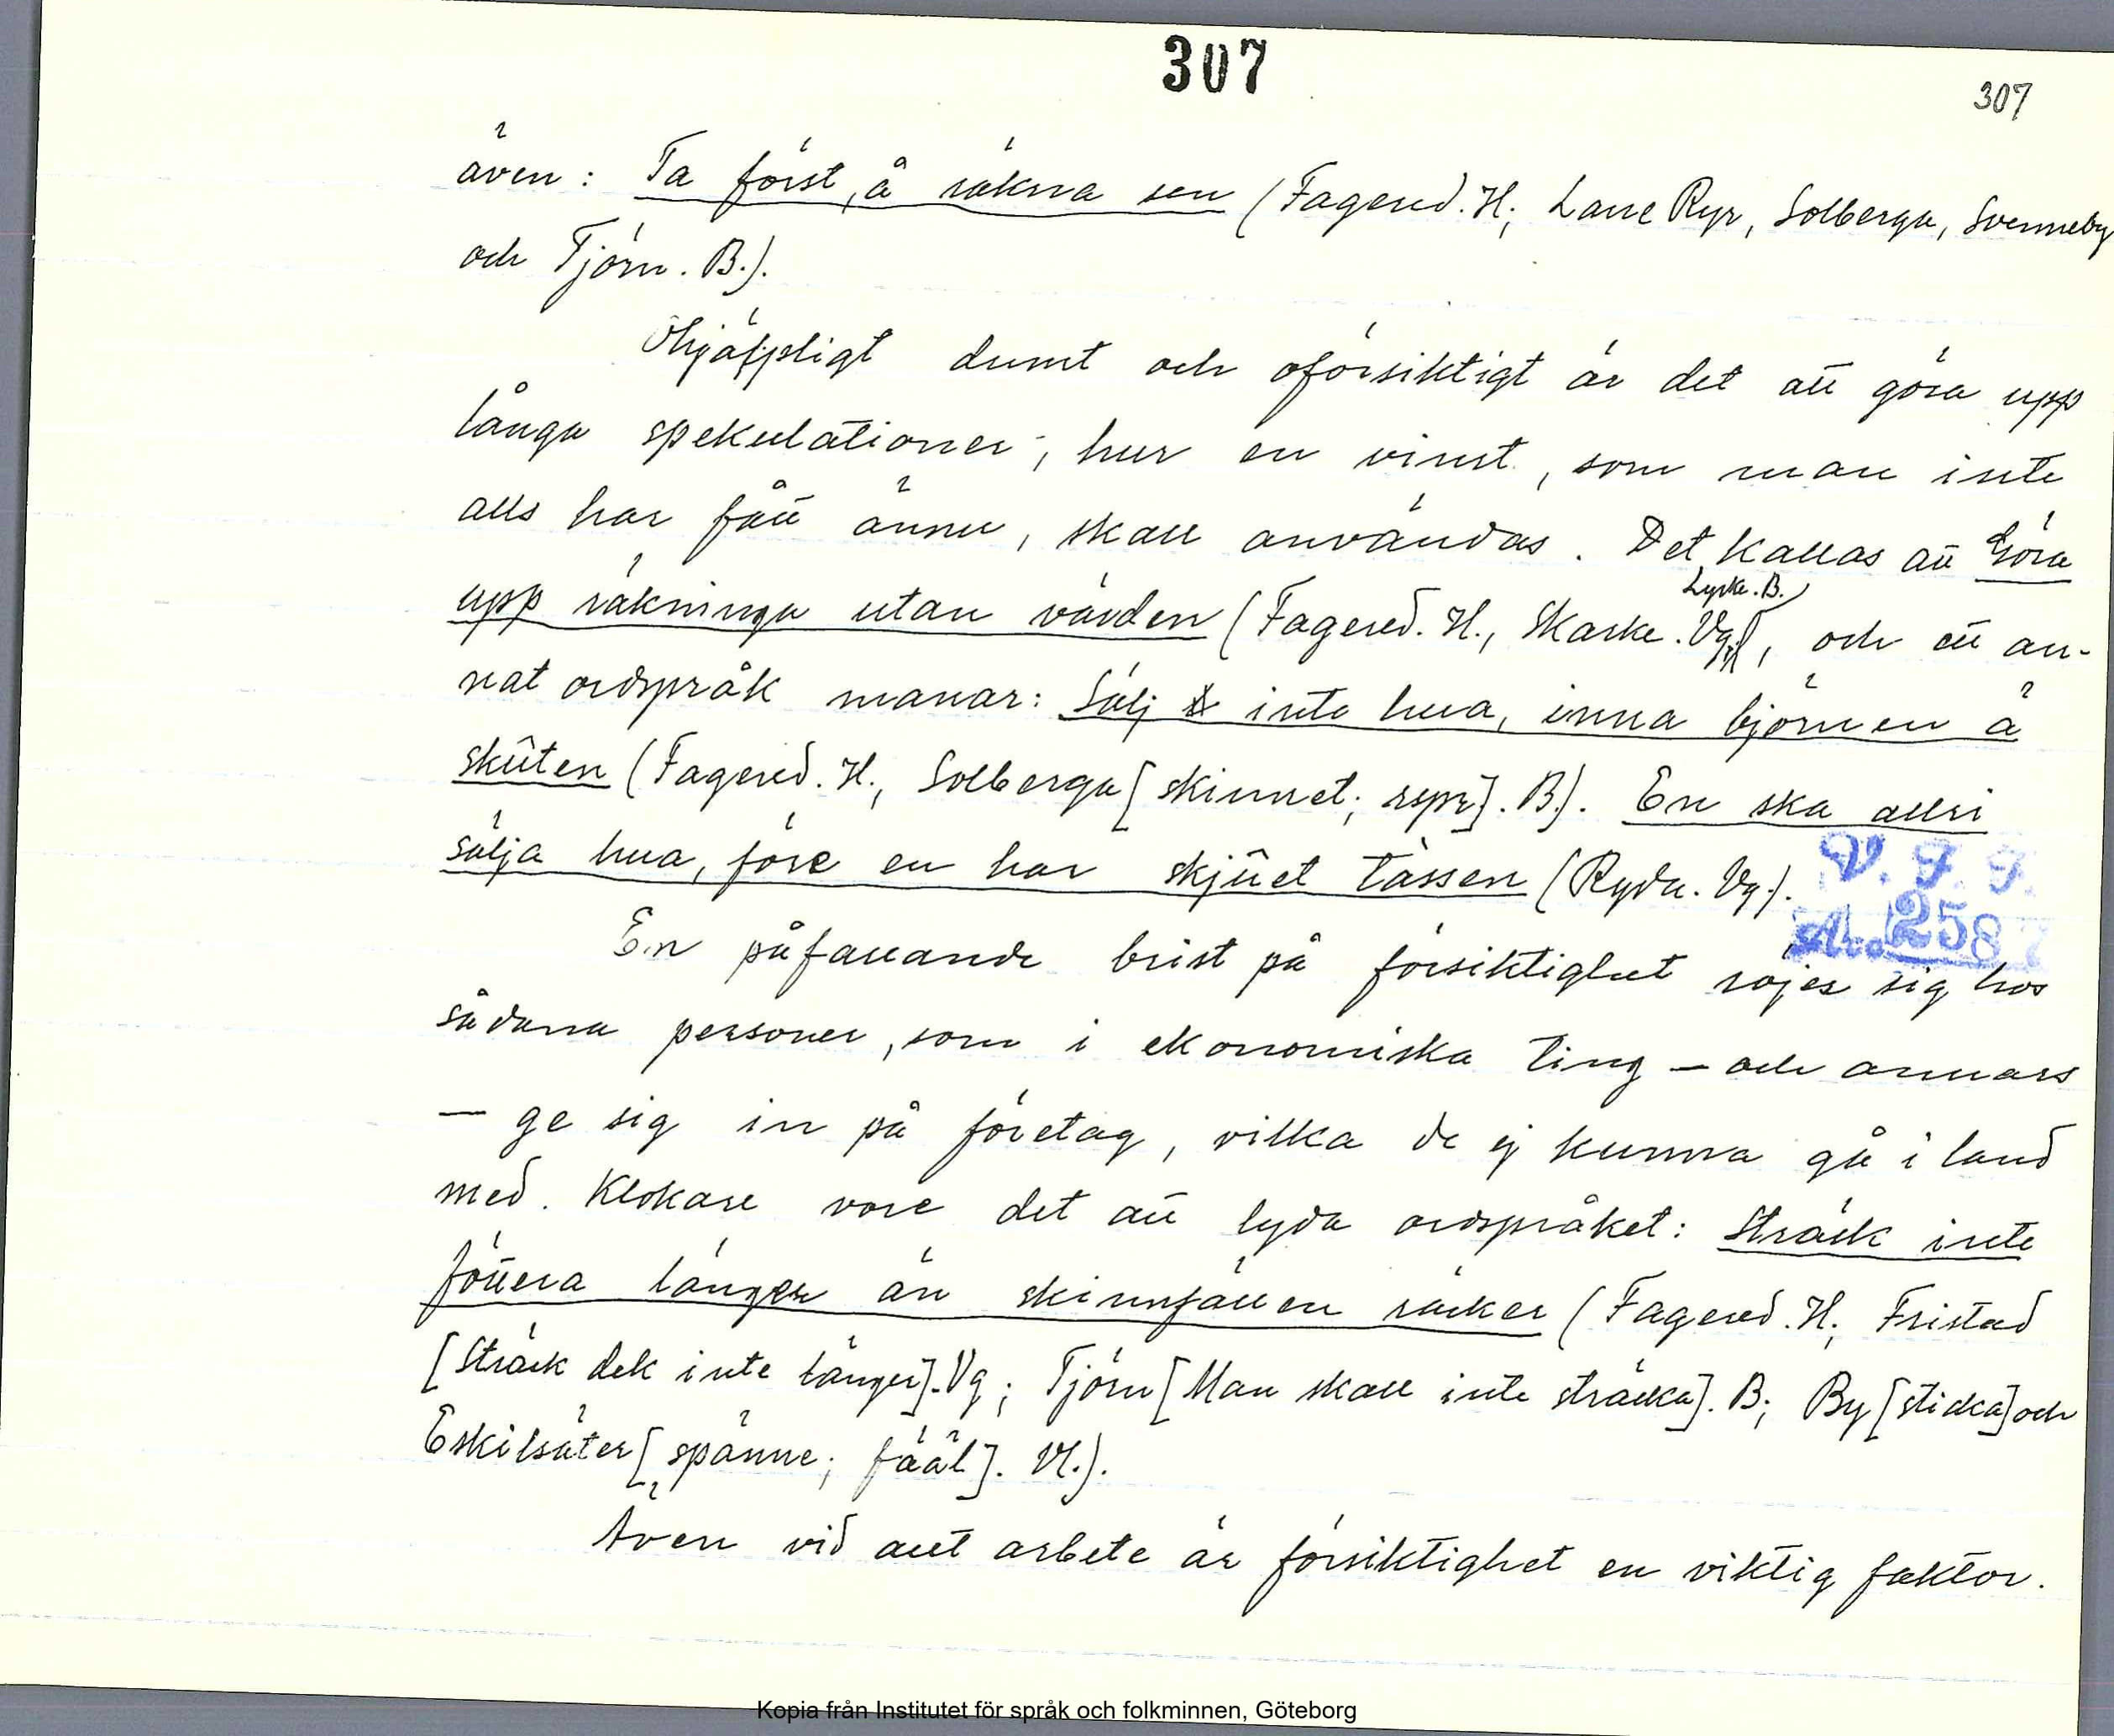 307
307
även: Ta först, å räkna sen (Fagered. H; Lane Ryr, Solberga, Svenneby
och Tjörn. B.).
Ohjälpligt dumt och oförsiktigt är det att göra upp
långa spekulationer, hur en vinst, som man inte
alls har fått ännu, skall användas. Det kallas att Göra
Lyrke. B.
upp räkninga utan värden (Fagered. H., Skarke. Vg.), och ett an-
nat ordspråk manar: Sälj inte hua, inna björnen ä
skûten (Fagered. H., Solberga [skinnet; ]. B.). En ska allri
sälja hua, före en har skjûet tassen (Ryda. Vg.).
V. F. F.
Acc. 2587
En påfallande brist på försiktighet röjer sig hos
sådana personer, som i ekonomiska ting – och annars
– ge sig in på företag, vilka de ej kunna gå i land
med. Klokare vore det att lyda ordspråket: Sträck inte
föttera länger än skinnfällen räcker (Fagered. H; Fristad
[Sträck dek inte länger]. Vg; Tjörn [Man skall inte sträcka]. B; By [sticka] och
Eskilsäter [spänne; fääl]. Vl.).
Även vid allt arbete är försiktighet en viktig faktor.
Kopia från Institutet för språk och folkminnen, Göteborg